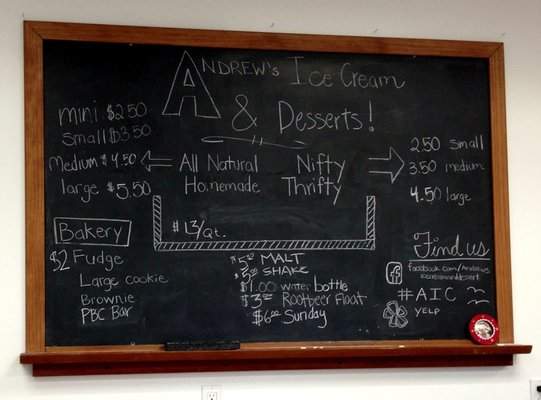 ANDREW'S Ice Cream
& Desserts!
mini $2.50
small $3.50
medium $4.50
large $5.50
All Natural
Homemade
Nifty
Thrifty
2.50 small
3.50 medium
4.50 large
$13/Qt.
Bakery
$2 Fudge
Large cookie
Brownie
PBC Bar
$5.00 MALT
$5.00 SHAKE
$1.00 water bottle
$3.00 Rootbeer Float
$6.00 Sunday
Find us
facebook.com/Andrews
icecreamanddessert
#AIC
YELP